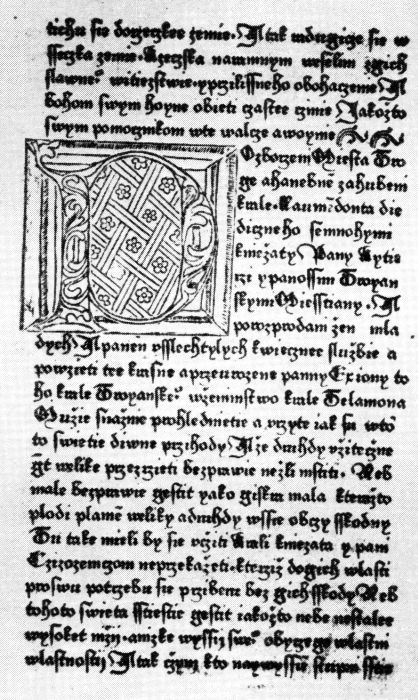 tichu sie dogegkee zemie. A tak radugicze sie w
sseczka zemie. Rzeczska naramnym weselim z gich
slawne° witiezstwie. y przilissneho obohaczenie A
bohom swym hoyne obieti czastee czinie Jakozto
swym pomocznikom wte walcze a woynie
Ozborzenim Miesta Tro
ge a hanebne zahubeni
krale. Laumedonta die
diczneho se mnohymi
kniezaty Pany Rytie
rzi y panossim Troyan
skym Miesstiany. A
porozprodani zen mla
dych A panen vsslechtylych kwiecznee sluzbie a
powzieti tee krasne a przeurozene panny Exiony to
ho krale Troyanske° wzeminstwo krale Telamona
Muzie snazne prohlednietie a vrzyte jak su wto
to swietie diwne przihody A ze druhdy vziteczne
gt welike przezrzieti bezprawie nezli mstiti. Neb
male bezprawie gestit yako giskra mala kterazto
plodi plamē weliky a druhdy wssie obczy sskodny
Tu take mieli by sie vcziti krali kniezata y pani
Czizozemczom neprzekazeti. kterziz do gich wlasti
pro swu potrzebu sie prziberu bez gich sskody Neb
tohoto swieta sstiestie gestit jakozto nebe nestalee
wysokeet nizii. a nizke wyssii swe° obyczege wlastni
wlastnostij A tak czym kto naywyssie stupen sstie